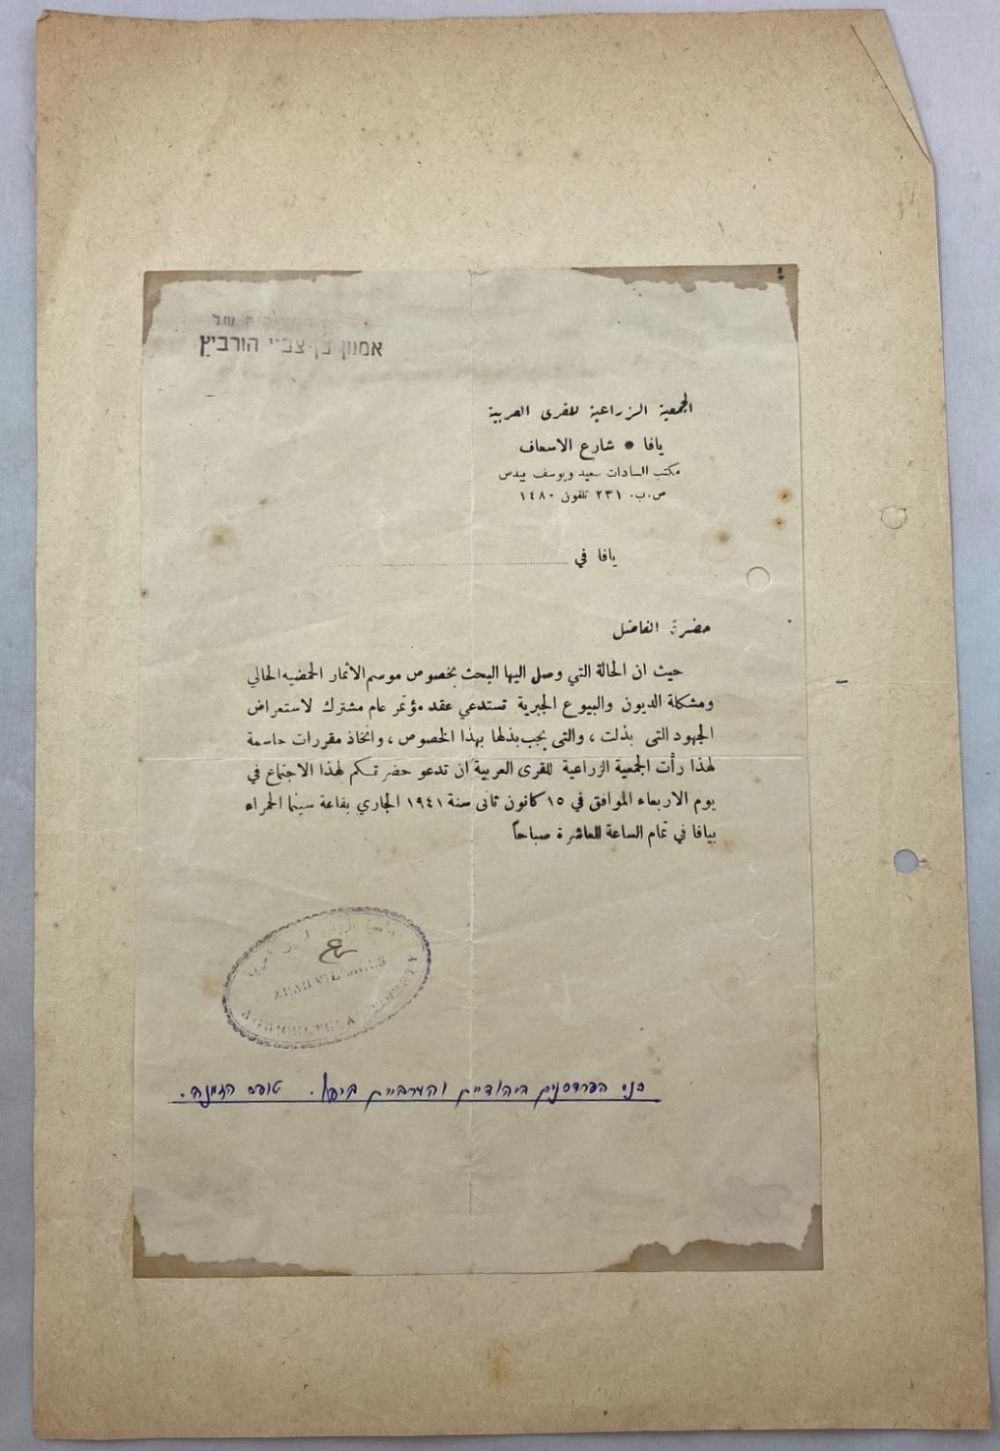 של
אמנון בן-צבי הורביץ
الجمعية الزراعية للقرى العربية
يافا • شارع الاسعاف
مكتب السادات سعيد ويوسف بيدس
ص.ب. ٢٣١ تلفون ١٤٨٠
يافا في
حضرة الفاضل
حيث ان الحالة التي وصل اليها البحث بخصوص موسم الاثمار الحمضيه الحالي
ومشكلة الديون والبيوع الجبرية تستدعي عقد مؤتمر عام مشترك لاستعراض
الجهود التى بذلت ، والتى يجب بذلها بهذا الخصوص ، واتخاذ مقررات حاسمة
لهذا رأت الجمعية الزراعية للقرى العربية ان تدعو حضرتكم لهذا الاجتماع في
يوم الاربعاء الموافق في ١٥ كانون ثانى سنة ١٩٤١ الجاري بقاعة سينما الحمراء
بيافا في تمام الساعة العاشرة صباحاً
ARAB VILLAGES
AGRICULTURAL
כנס הפרדסנים היהודיים והערביים ביפו. טופס הזמנה.